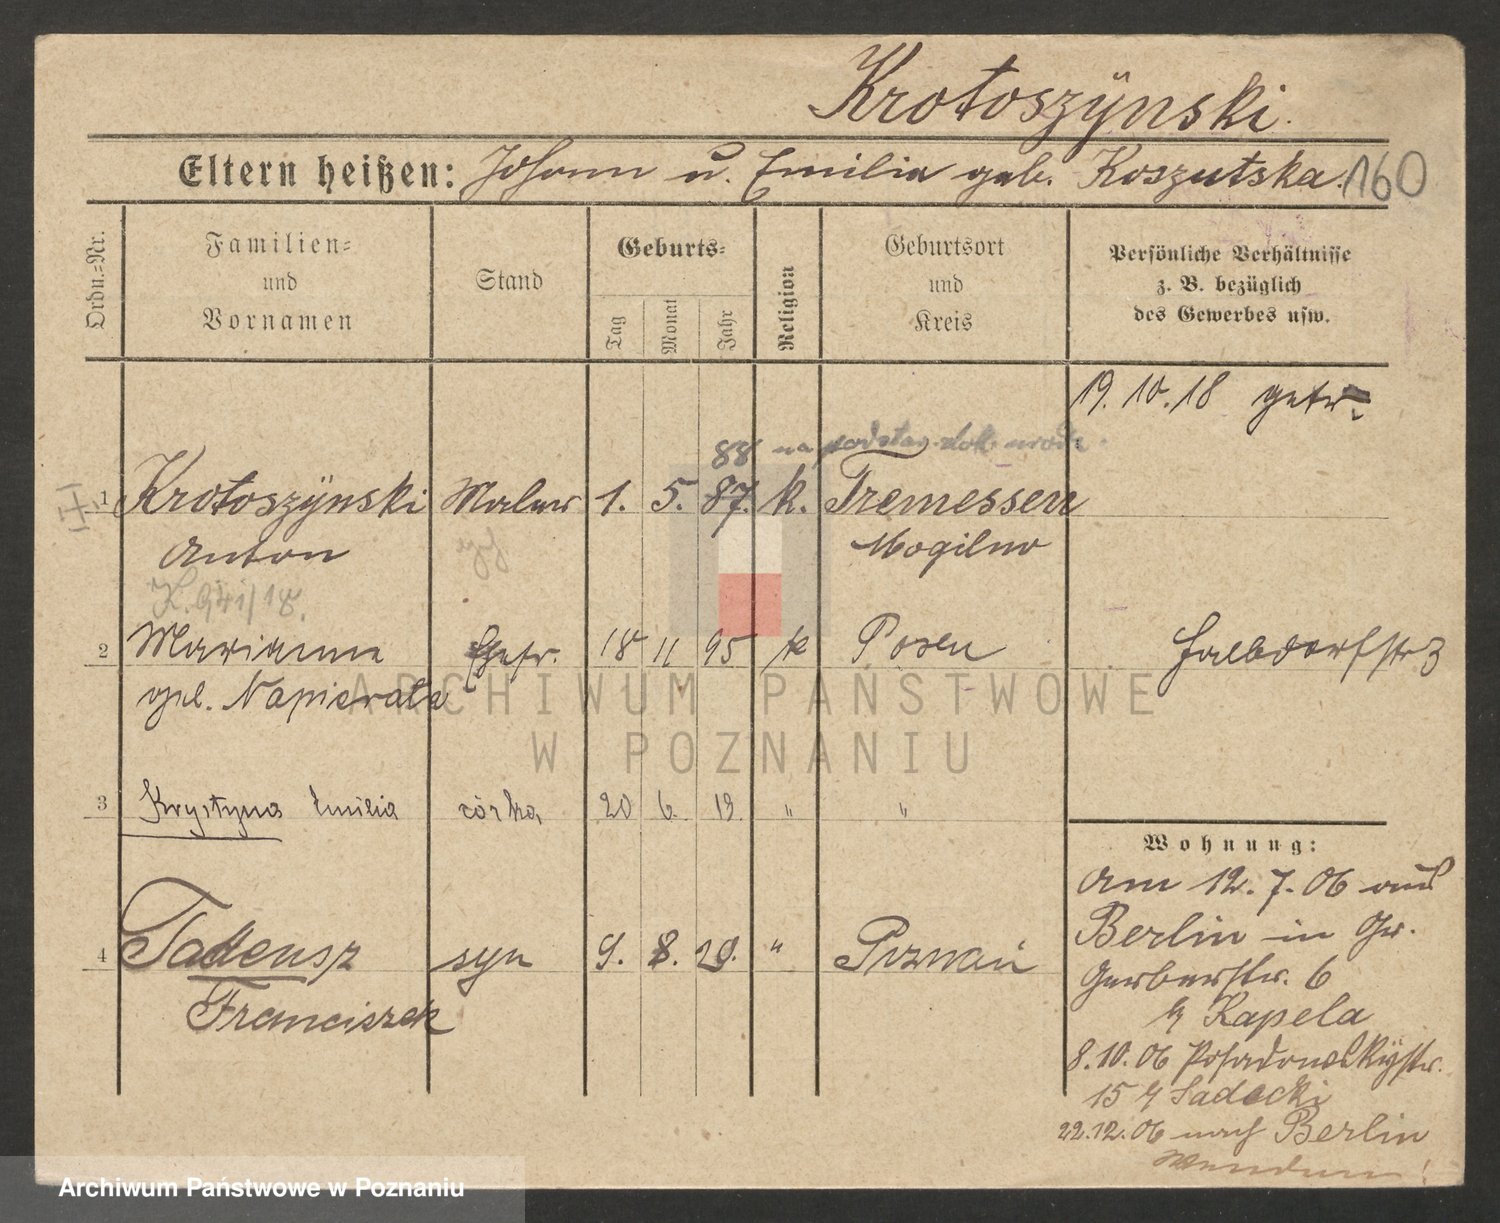 Krotoszÿnski.
Eltern heißen: Johann u. Emilia geb. Koszutska. 160
Ordn.=Nr.
Familien=
und
Vornamen
Stand
Geburts=
Tag
Monat
Jahr
Religion
Geburtsort
und
Kreis
Persönliche Verhältnisse
z. B. bezüglich
des Gewerbes usw.
19.10.18 getr.
88 na podstaw. dok. urodz.
1 Krotoszÿnski Maler 1. 5. 87. k. Tremessen
Anton Mogilno
K. 941/18.
2 Marianna Ehefr. 18 11 95 k Posen
geb. Napierata
Halbdorfstr 3
3 Krystyna Emilia córka 20 6. 19. " "
4 Tadeusz syn 9. 8. 20. " Poznań
Franciszek
Wohnung:
Am 12.7.06 aus
Berlin in Gr.
Gerberstr. 6
b/ Kapela
8.10.06 Posadowskÿstr.
15 b/ Sadecki
22.12.06 nach Berlin
ARCHIWUM PAŃSTWOWE
W POZNANIU
Archiwum Państwowe w Poznaniu